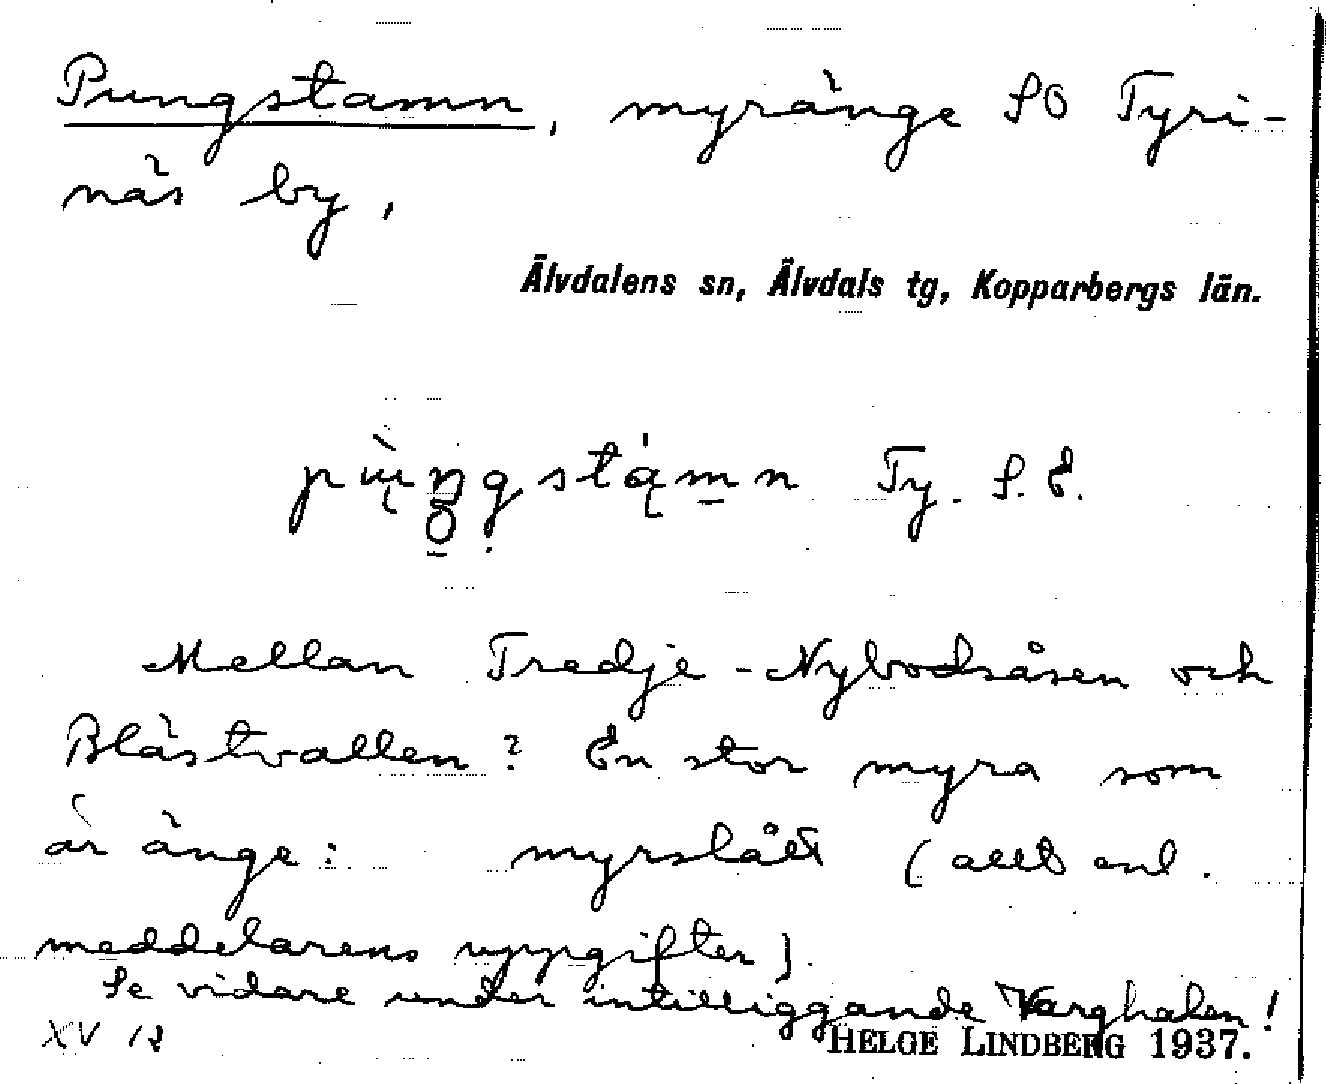 Pungstamn, myränge SO Tyri-
näs by,
Älvdalens sn, Älvdals tg, Kopparbergs län.
Ty. S. E.
Mellan Tredje-Nybodsåsen och
Blästvallen? En stor myra som
är änge: myrslått (allt enl.
meddelarens uppgifter).
Se vidare under intilliggande Varghalen!
XV 12
HELGE LINDBERG 1937.